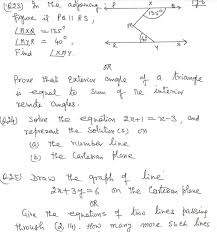 (Q.23) In the adjoining
figure is PQ || RS,
∠MXQ = 135°
∠MYR = 40°,
Find ∠XMY
P X Q
135°
M
40°
R Y S
OR
Prove that Exterior angle of a triangle
is equal to sum of the interior
remote angles.
(Q.24) Solve the equation 2x+1 = x-3, and
represent the solution(s) on
(a) the number line
(b) the Cartesian plane
(Q.25) Draw the graph of line
2x+3y=6 on the Cartesian plane
OR
Give the equations of two lines passing
through (2,14). How many more such lines